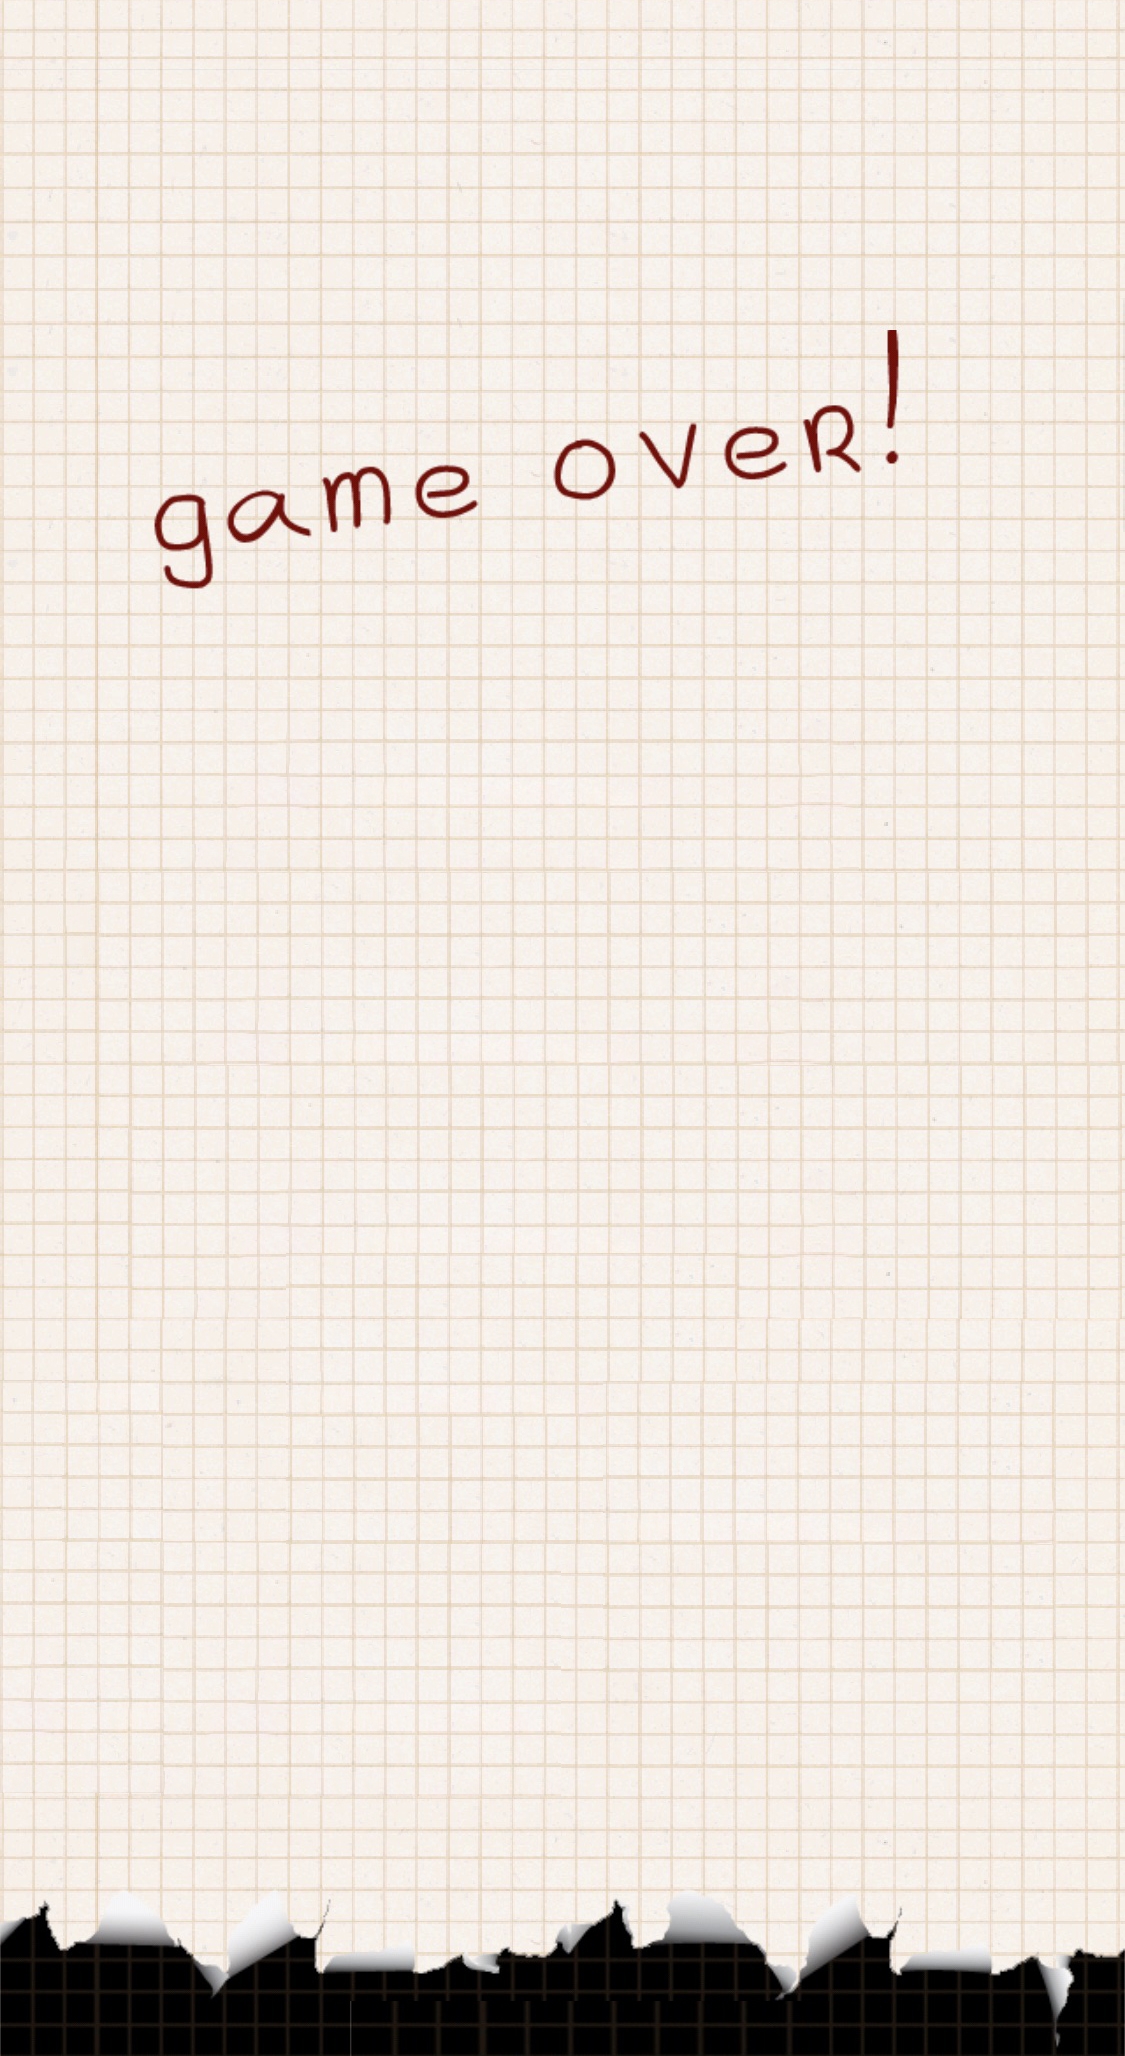 game over!